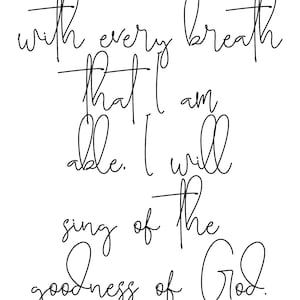 with every breath
that I am
able. I will
sing of the
goodness of God.